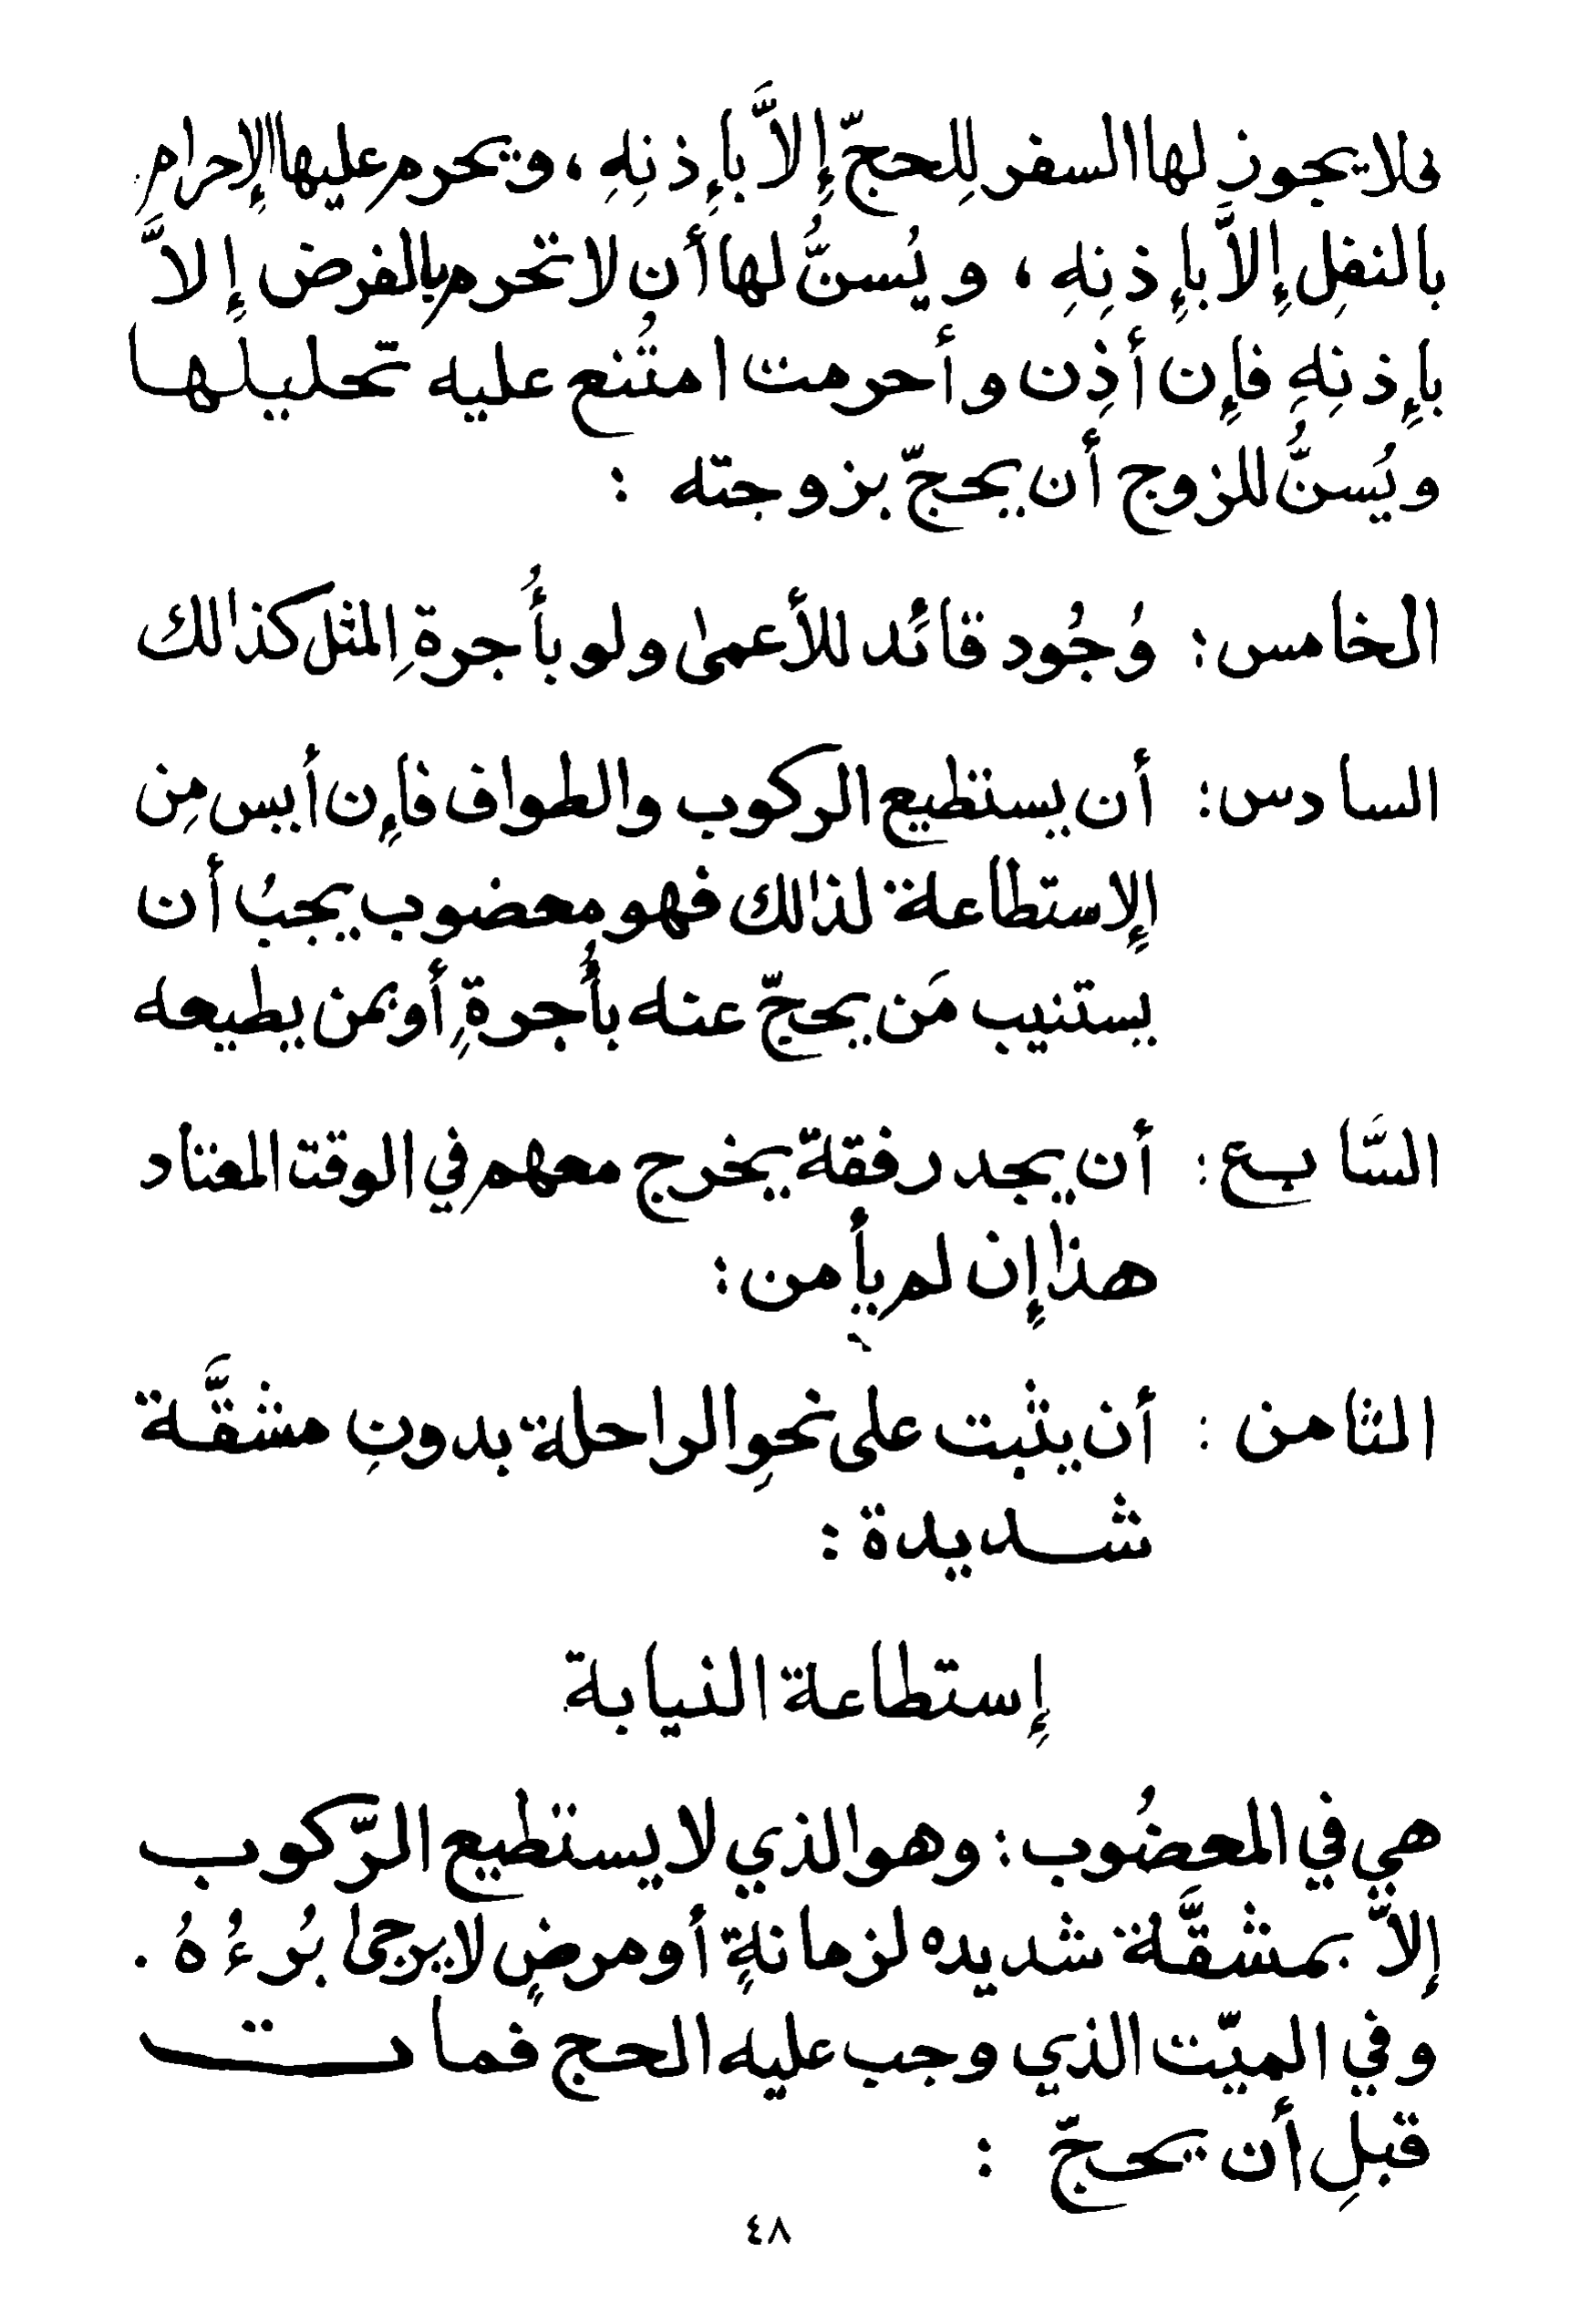 فلا يجوز لها السفر لِلحجّ إِلاَّ بإِذنِهِ ، وتحرم عليها الإِحرام
بالنفِل إِلاَّ بإِذنِهِ ، و يُسنُّ لها أن لا تحرم بالفرض إِلاَّ
بإِذنِهِ فإِن أذِن و أحرمت امتُنع عليه تحليلها
ويُسنُّ للزوج أن يحجّ بزوجته :
الخامس : وُجُود قائد للأعمىٰ ولو بأُجرةِ المثل كذالك
السادس : أن يستطيع الركوب والطواف فإِن أيس مِن
الإِستطاعة لذالك فهو معضوب يجبُ أن
يستنيب مَن يحجّ عنه بأُجرةٍ أو بمن يطيعه
السَّابع : أن يجد رفقة يخرج معهم في الوقت المعتاد
هذا إِن لم يأمن :
الثامن : أن يثبت على نحوِ الراحلة بدونِ مشقَّة
شديدة :
إِستطاعة النيابة
هي في المعضُوب : وهو الذي لا يستطيع الرّكوب
إِلاَّ بمشقَّة شديده لزمانةٍ أو مرضٍ لا يرجىٰ بُرءُهُ .
وفي الميّت الذي وجب عليه الحج فمات
قبلِ أن يحجّ :
٤٨